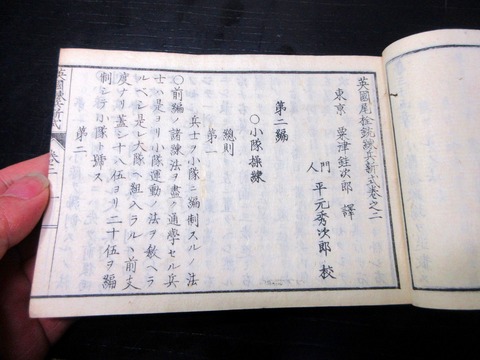 英國尾栓銃練兵新式卷之二
東京 粟津銈次郎 譯
門人 平元秀次郎 校
第二編
○小隊操練
總則
兵士ヲ小隊ニ編制スルノ法
第一
○前編ノ諸練法ヲ盡ク通學セル兵
士ハ是ヨリ小隊運動ノ法ヲ敎ヘラ
ルベシ是レ大隊ヘ組入ラルヽ前支
度ナリ蓋シ十八伍ヨリ二十伍ヲ編
制シテ小隊ト號ス
第二